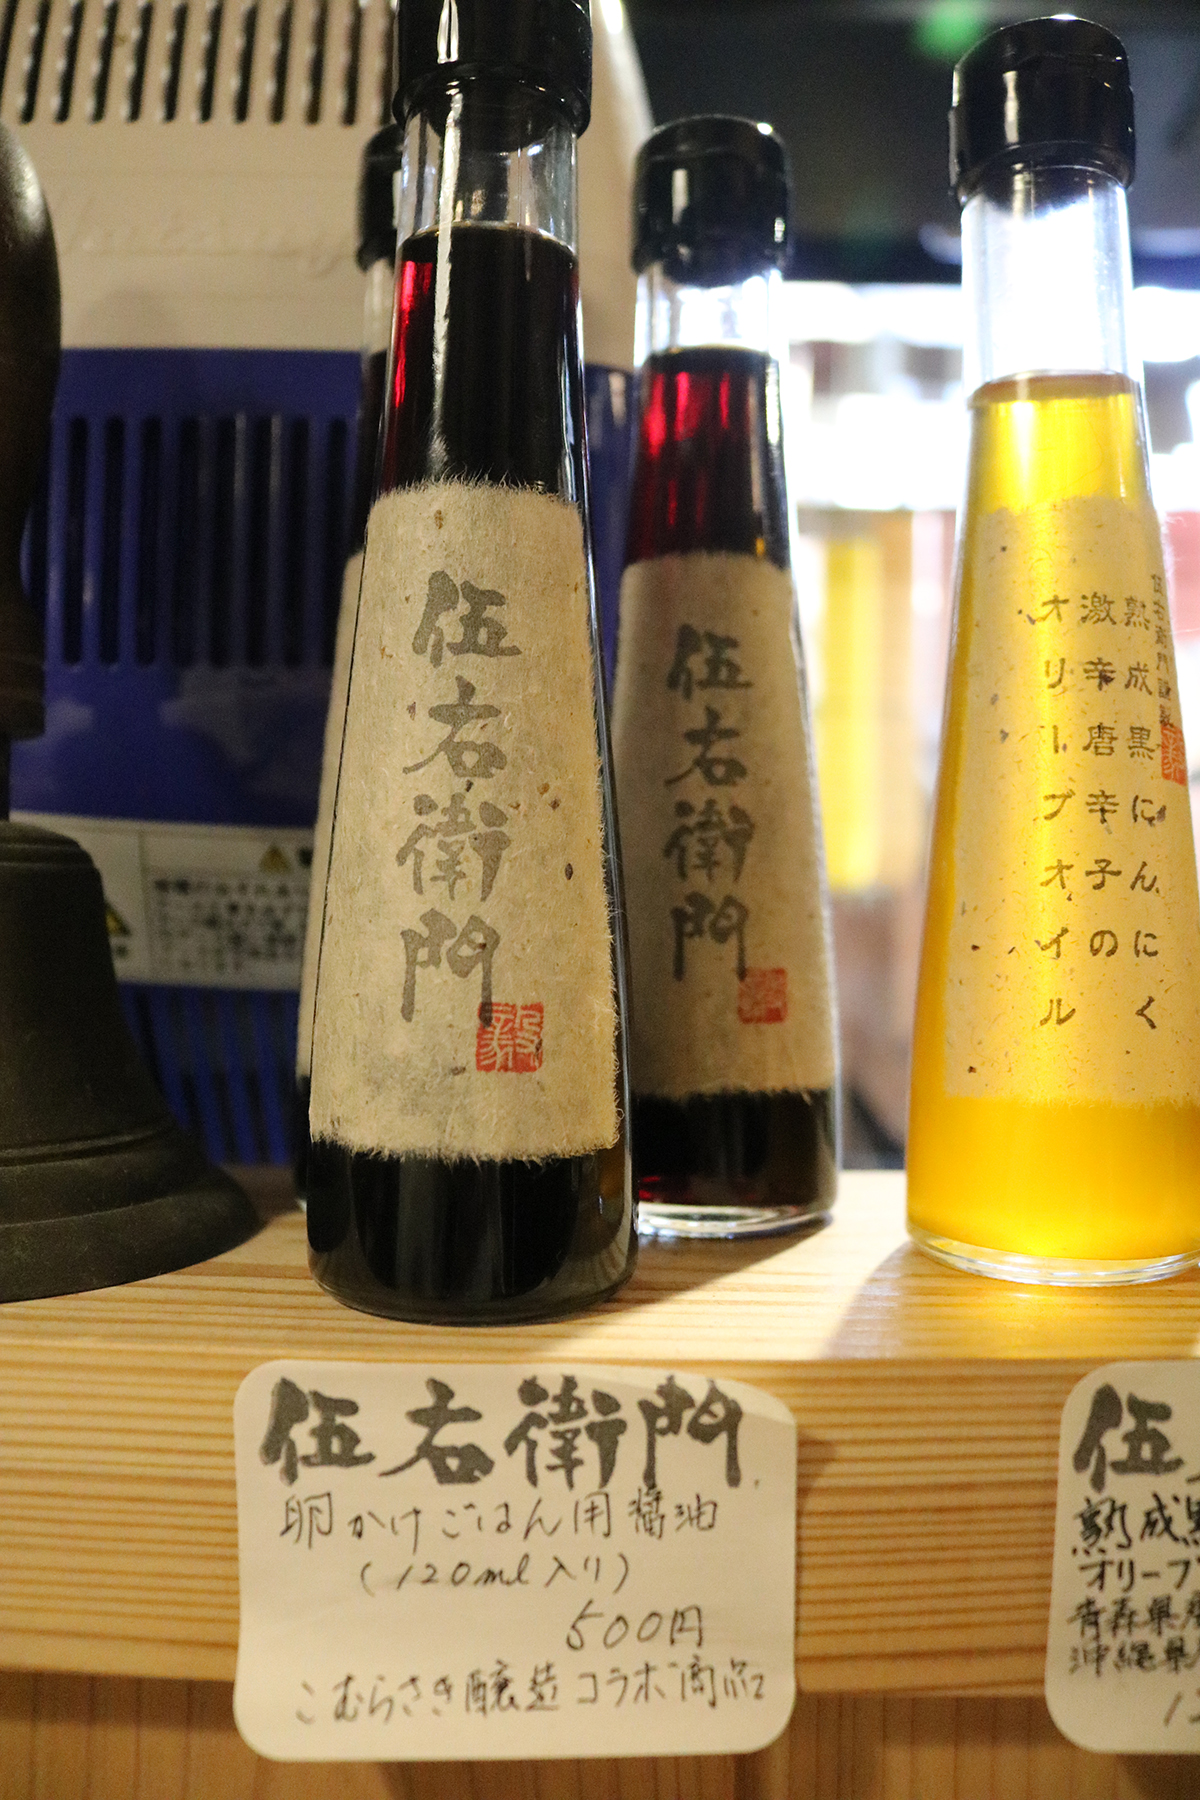 伍右衛門
毅
伍右衛門
毅
伍右衛門謹製
熟成黒にんにく
激辛唐辛子の
オリーブオイル
伍右衛門
卵かけごはん用醤油
(120ml入り)
500円
こむらさき醸造 コラボ商品
伍
熟成黒
オリーブ
青森県
沖縄県